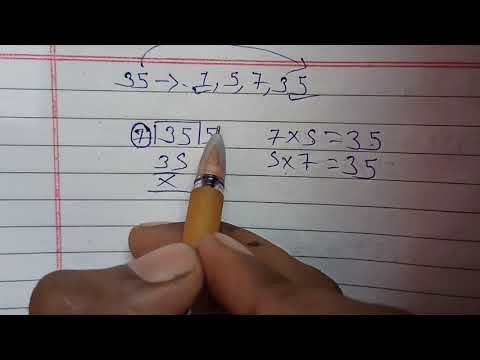 35 → 1, 5, 7, 35
7 35 5 7 x 5 = 35
35 5 x 7 = 35
x